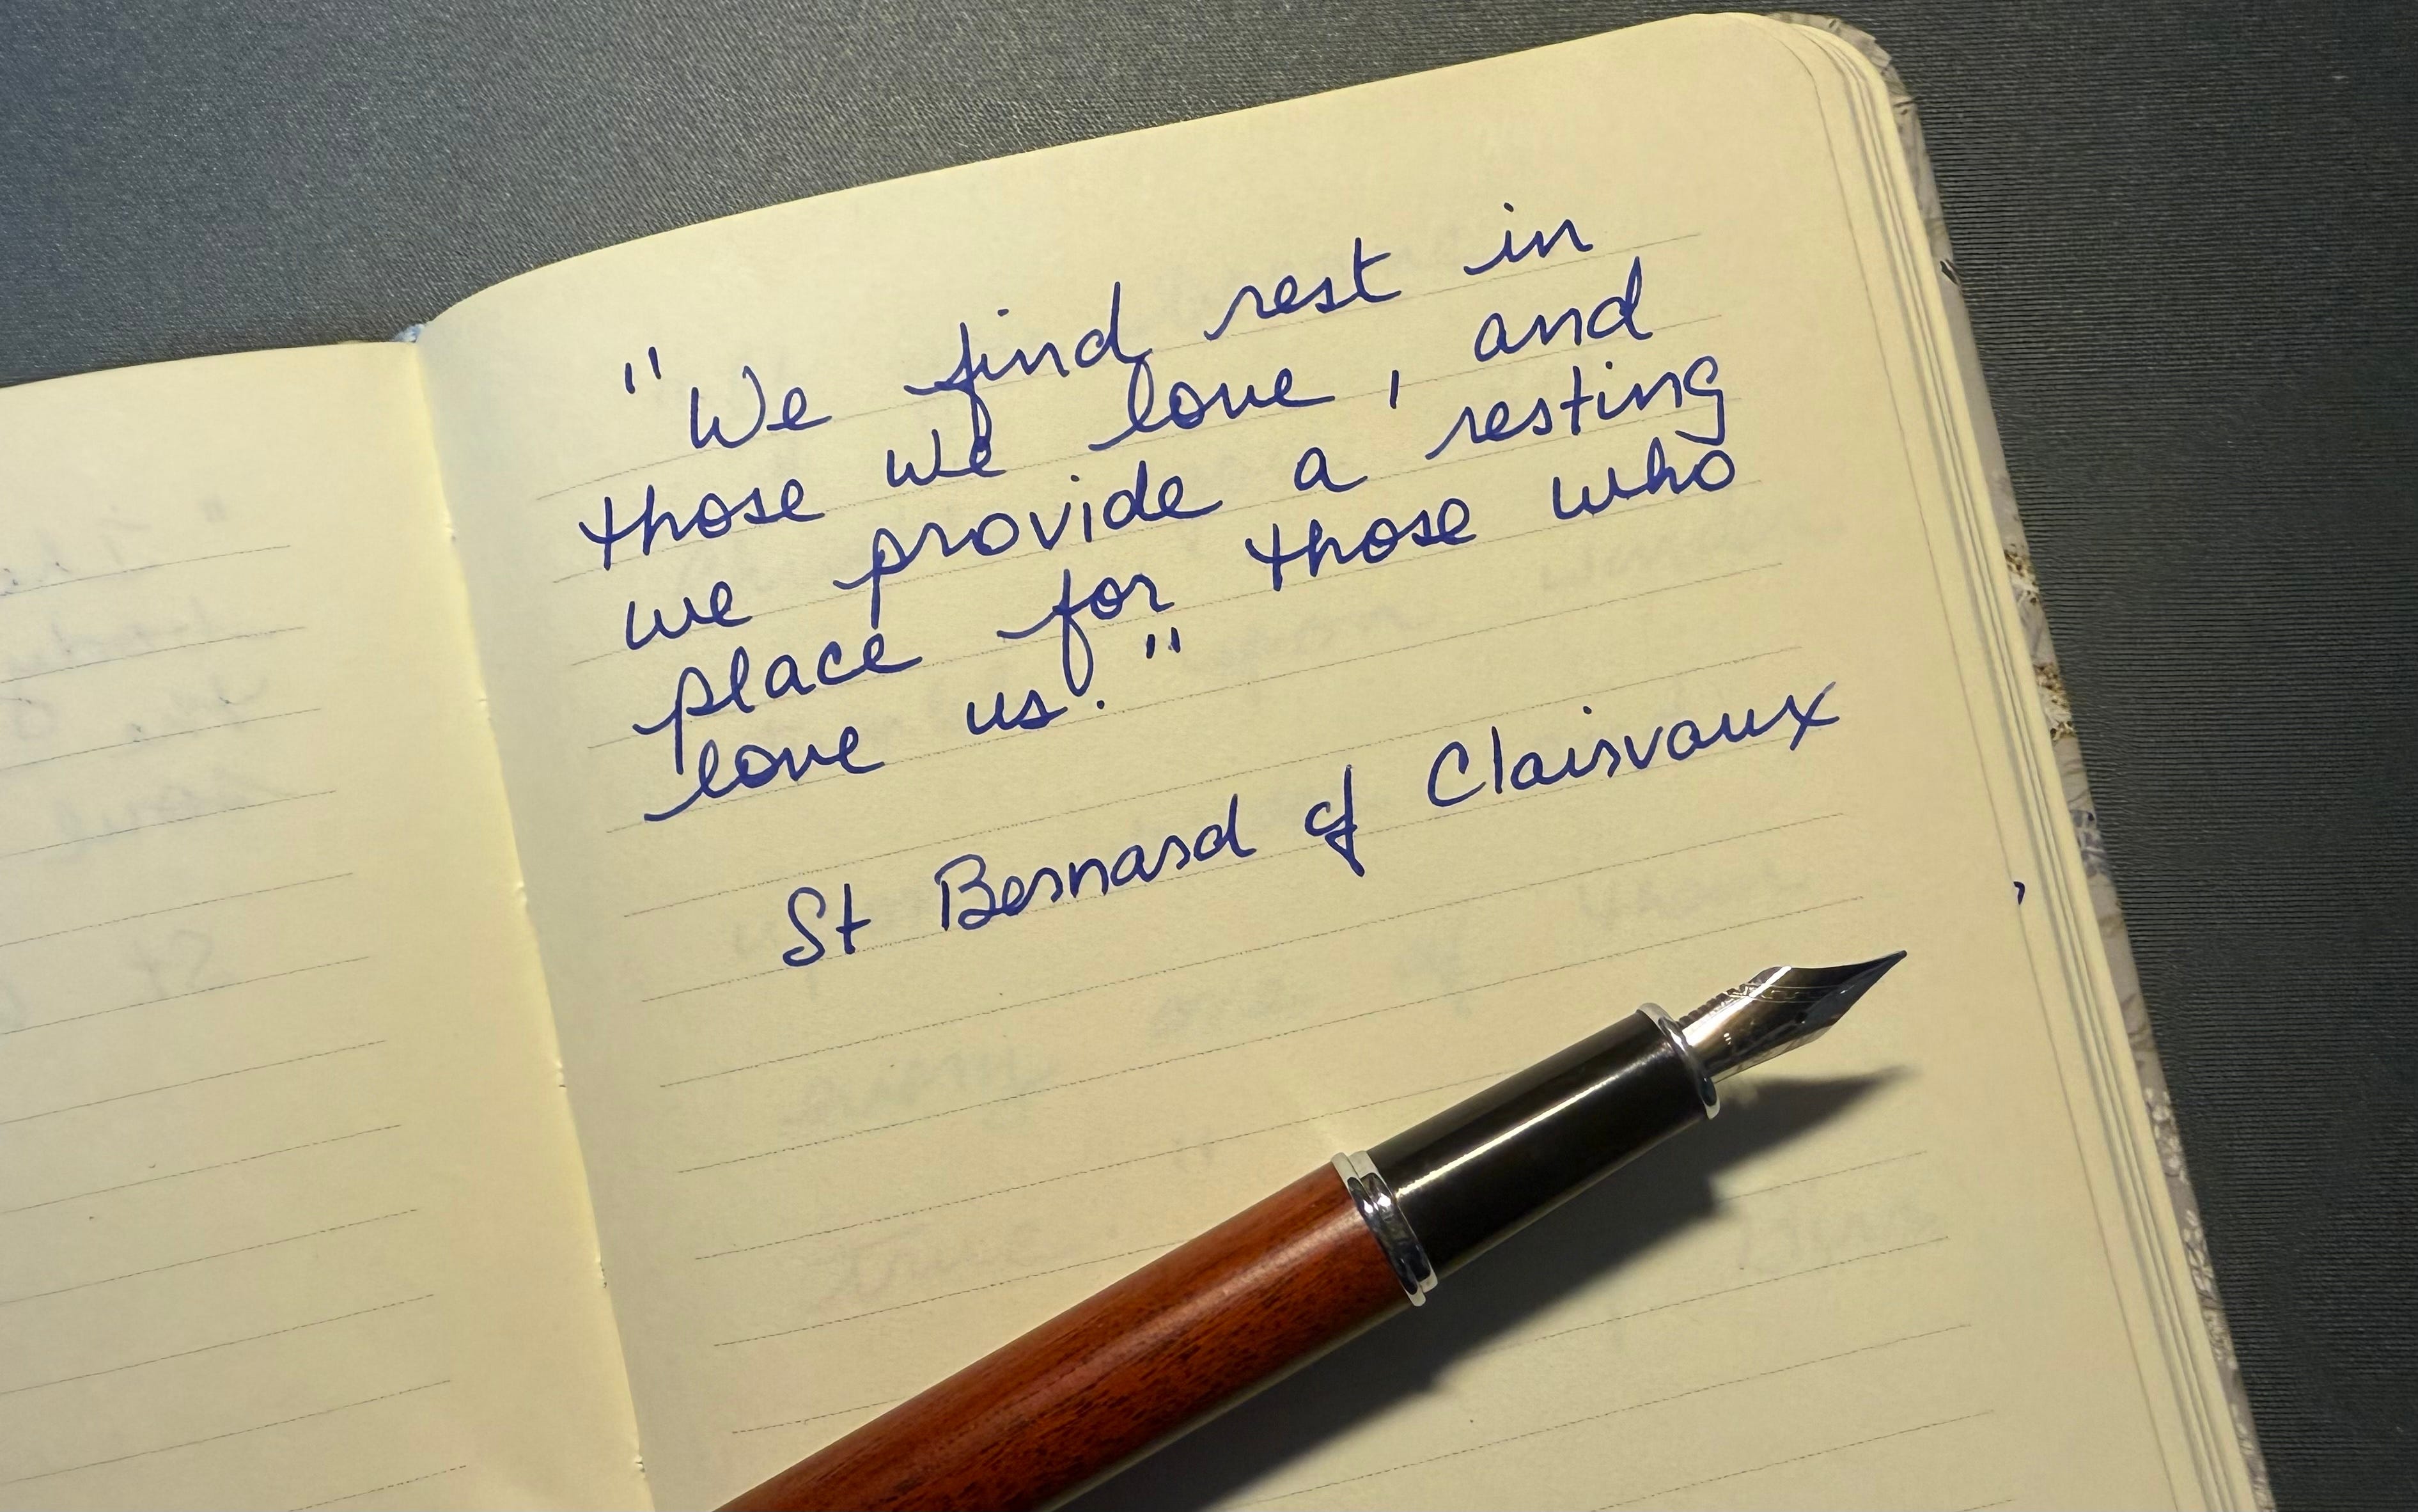 "We find rest in
those we love, and
we provide a resting
place for those who
love us."
St Bernard of Clairvaux